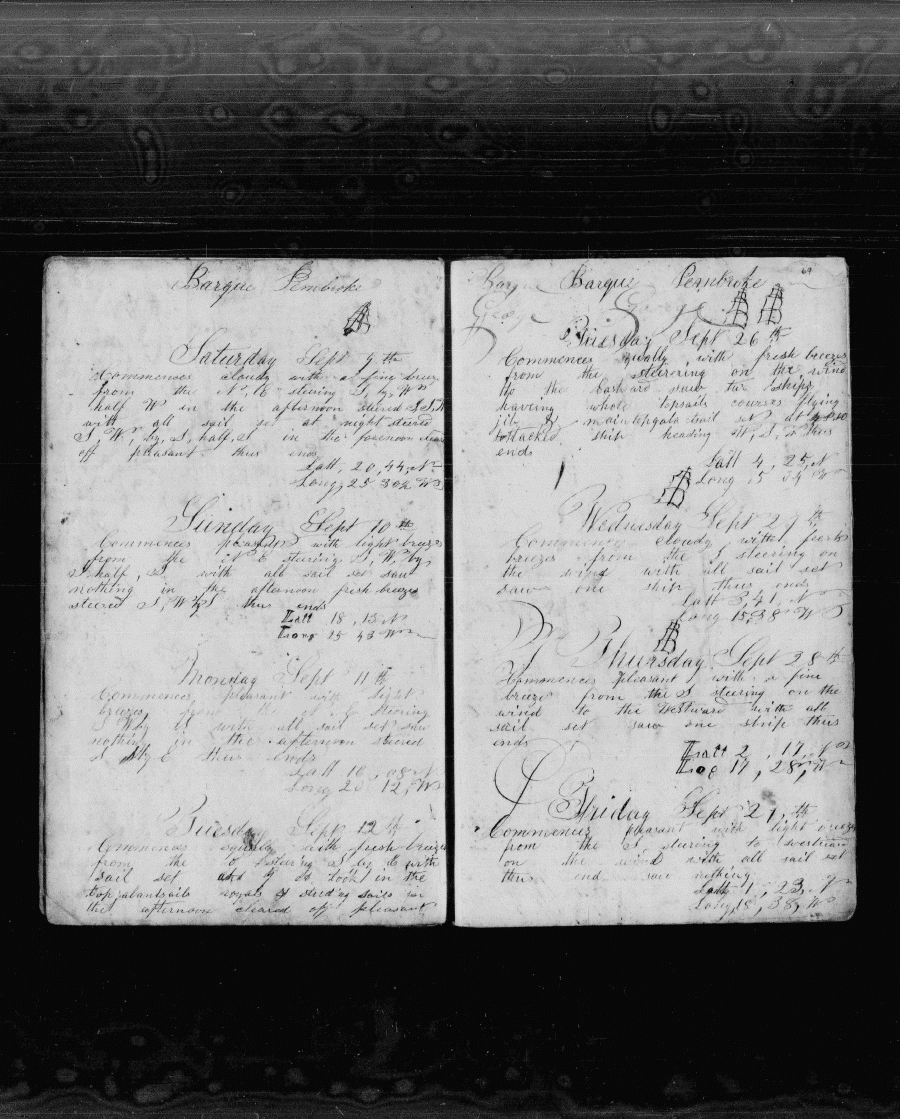 Barque Pembroke
Saturday Sept 9 th
Commences cloudy with a fine breeze
from the N, E steering S, by, W
half W in the afternoon steered S, S, W
with all sail set at night steered
S, W, by, S, half, S in the forenoon clear
off pleasant thus ends
Latt, 20, 44, N
Long, 25 30 W
Sunday Sept 10 th
Commences pleasant with light breezes
from the N E steering S, W, by
S half, S, with all sail set saw
nothing in the afternoon fresh breezes
steered S, W by S thus ends
Latt 18, 15 N
Long 25 43 W
Monday Sept 11 th
Commences pleasant with light
breezes from the steering
S with all sail set saw
nothing in the afternoon steered
S by E thus ends
Latt 16, 08 N
Long 25 12, W
Tuesday Sept 12 th
Commences squaly with fresh breezes
from the steering S by E with
sail set and took in the
topgalantsails royals & studing sails in
the afternoon cleared off pleasant
69
Barque Barque Pembroke
George George
Tuesday Sept 26 th
Commences squally with fresh breezes
from the steerering on the wind
to the eastward saw tar ships
having whole topsails courses flying
jib & maintopgalatsail set at
tacked ship heading W, S, W thus
ends
Latt 4, 25, N
Long 15 34 W
Wednesday Sept 27 th
Commences cloudy with fresh
breezes from the S steering on
the wind with all sail set
saw one ship thus ends
Latt 3, 41, N
Long 15, 38 W
Thursday Sept 28 th
Commences pleasant with a fine
breeze from the S steering on the
wind to the Westward with all
sail set saw one ship thus
ends
Latt 2, 17, N
Log 17, 28, W
Friday Sept 29, th
Commences pleasant with light breezes
from the S steering to westward
on the wind with all sail set
thus end saw nothing
Latt 1, 23, N
Long, 18, 38, W